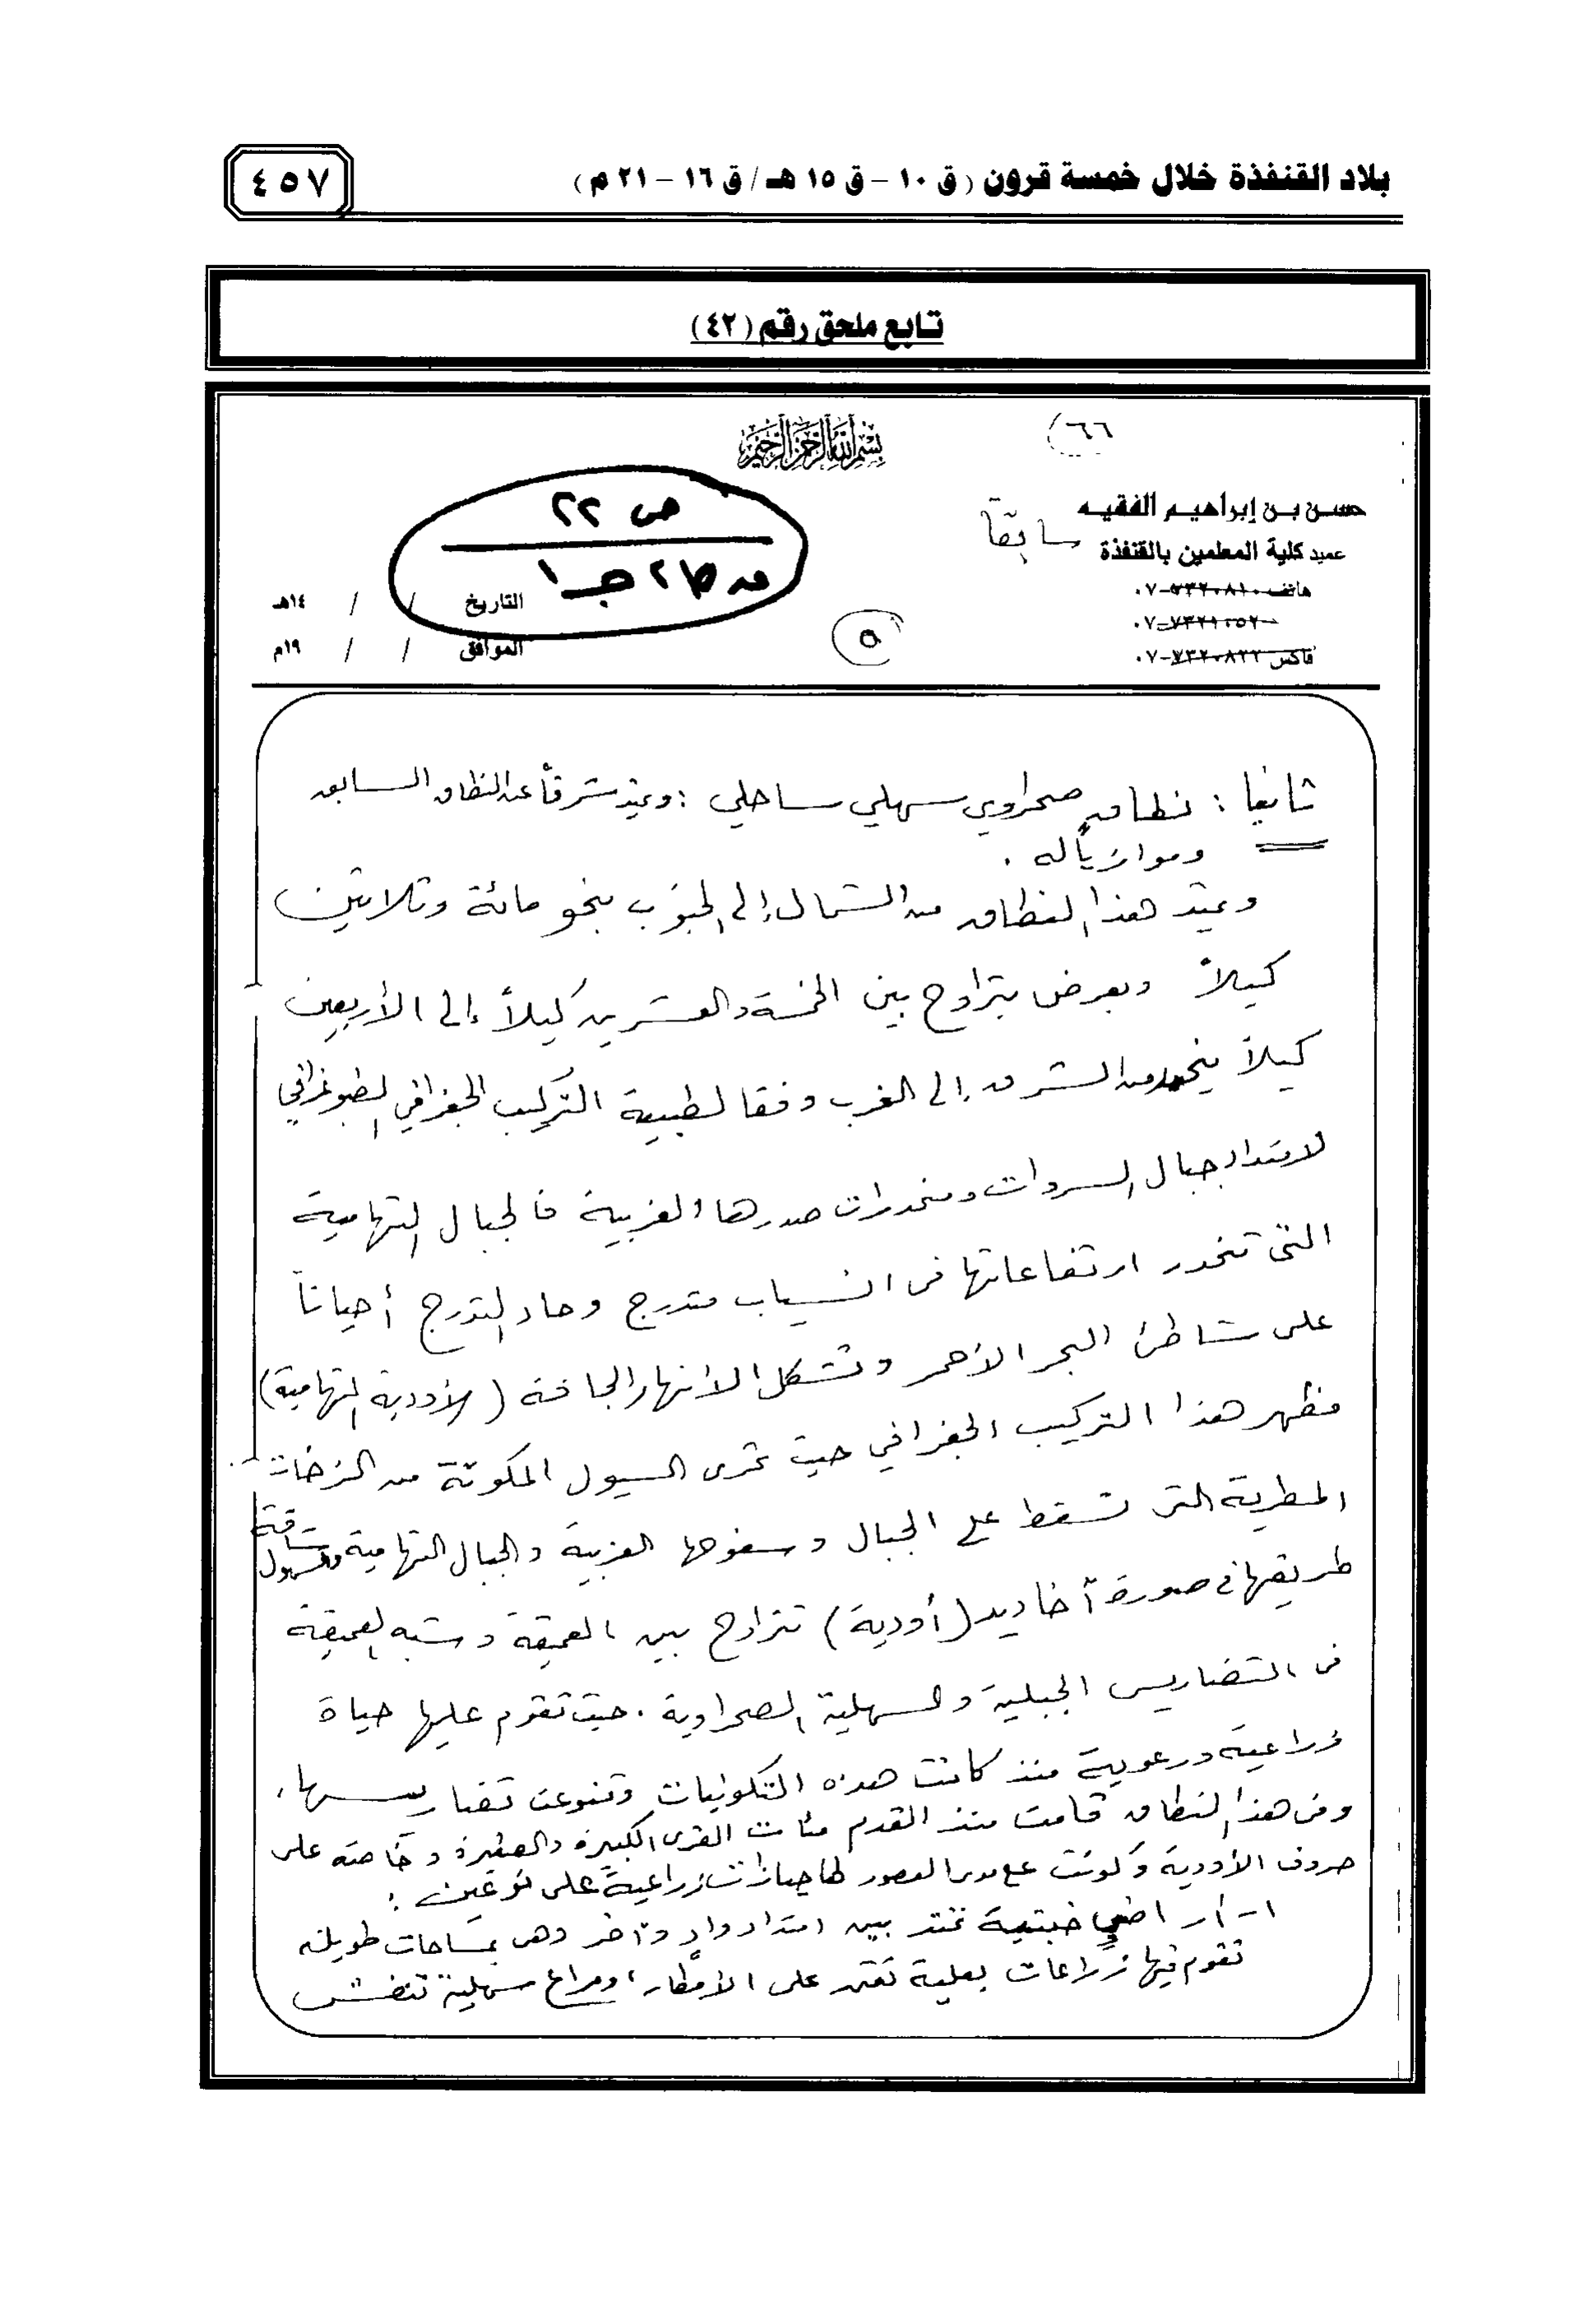 بلاد القنفذة خلال خمسة قرون (ق ١٠ - ق ١٥ هـ / ق ١٦ - ٢١ م)
٤٥٧
تابع ملحق رقم (٤٢)
(٦٦
بسم الله الرحمن الرحيم
حسن بن إبراهيم الفقيه
عميد كلية المعلمين بالقنفذة سابقاً
هاتف ٧٣٢٠٨١٠-٠٧
٧٣٢١٠٥٢-٠٧
فاكس ٧٣٢٠٨٢٢-٠٧
ص ٢٢
من ط٢ جـ١
التاريخ / / ١٤هـ
الموافق / / ١٩م
٥
ثانياً : نطاق صحراوي سهلي ساحلي : ويمتد شرقاً عن النطاق السابق
وموازياً له .
ويمتد هذا النطاق من الشمال إلى الجنوب بنحو مائة وثلاثين
كيلاً وبعرض يتراوح بين الخمسة والعشرين كيلاً إلى الأربعين
كيلاً ينحدر من الشرق إلى الغرب وفقا لطبيعة التركيب الجغرافي الطبوغرافي
لامتداد جبال السروات ومنحدرات صدرها الغربية فالجبال التهامية
التي تنحدر ارتفاعاتها في انسياب متدرج وحاد التدرج أحياناً
على شاطئ البحر الأحمر وتشكل الأنهار الجافة (الأودية التهامية)
مظهر هذا التركيب الجغرافي حيث تجري السيول المكونة من الزخات
المطرية التي تسقط على الجبال وسفوحها الغربية والجبال التهامية والسهول شاقة
طريقها في صورة أخاديد (أودية) تتراوح بين العميقة وشبه العميقة
في التضاريس الجبلية والسهلية الصحراوية . حيث تقوم عليها حياة
زراعية ورعوية منذ كانت هذه التكوينات وتنوعت تضاريسها .
وفي هذا النطاق قامت منذ القدم مئات القرى الكبيرة والصغيرة وخاصة على
حروف الأودية وكونت على مدى العصور لها حيازات زراعية على نوعين :
١- أراضي خبتية تمتد بين امتداد وادٍ وآخر وهي بمساحات طويلة
تقوم فيها زراعات بعلية تعتمد على الأمطار ، ومراع سهلية تنتعش